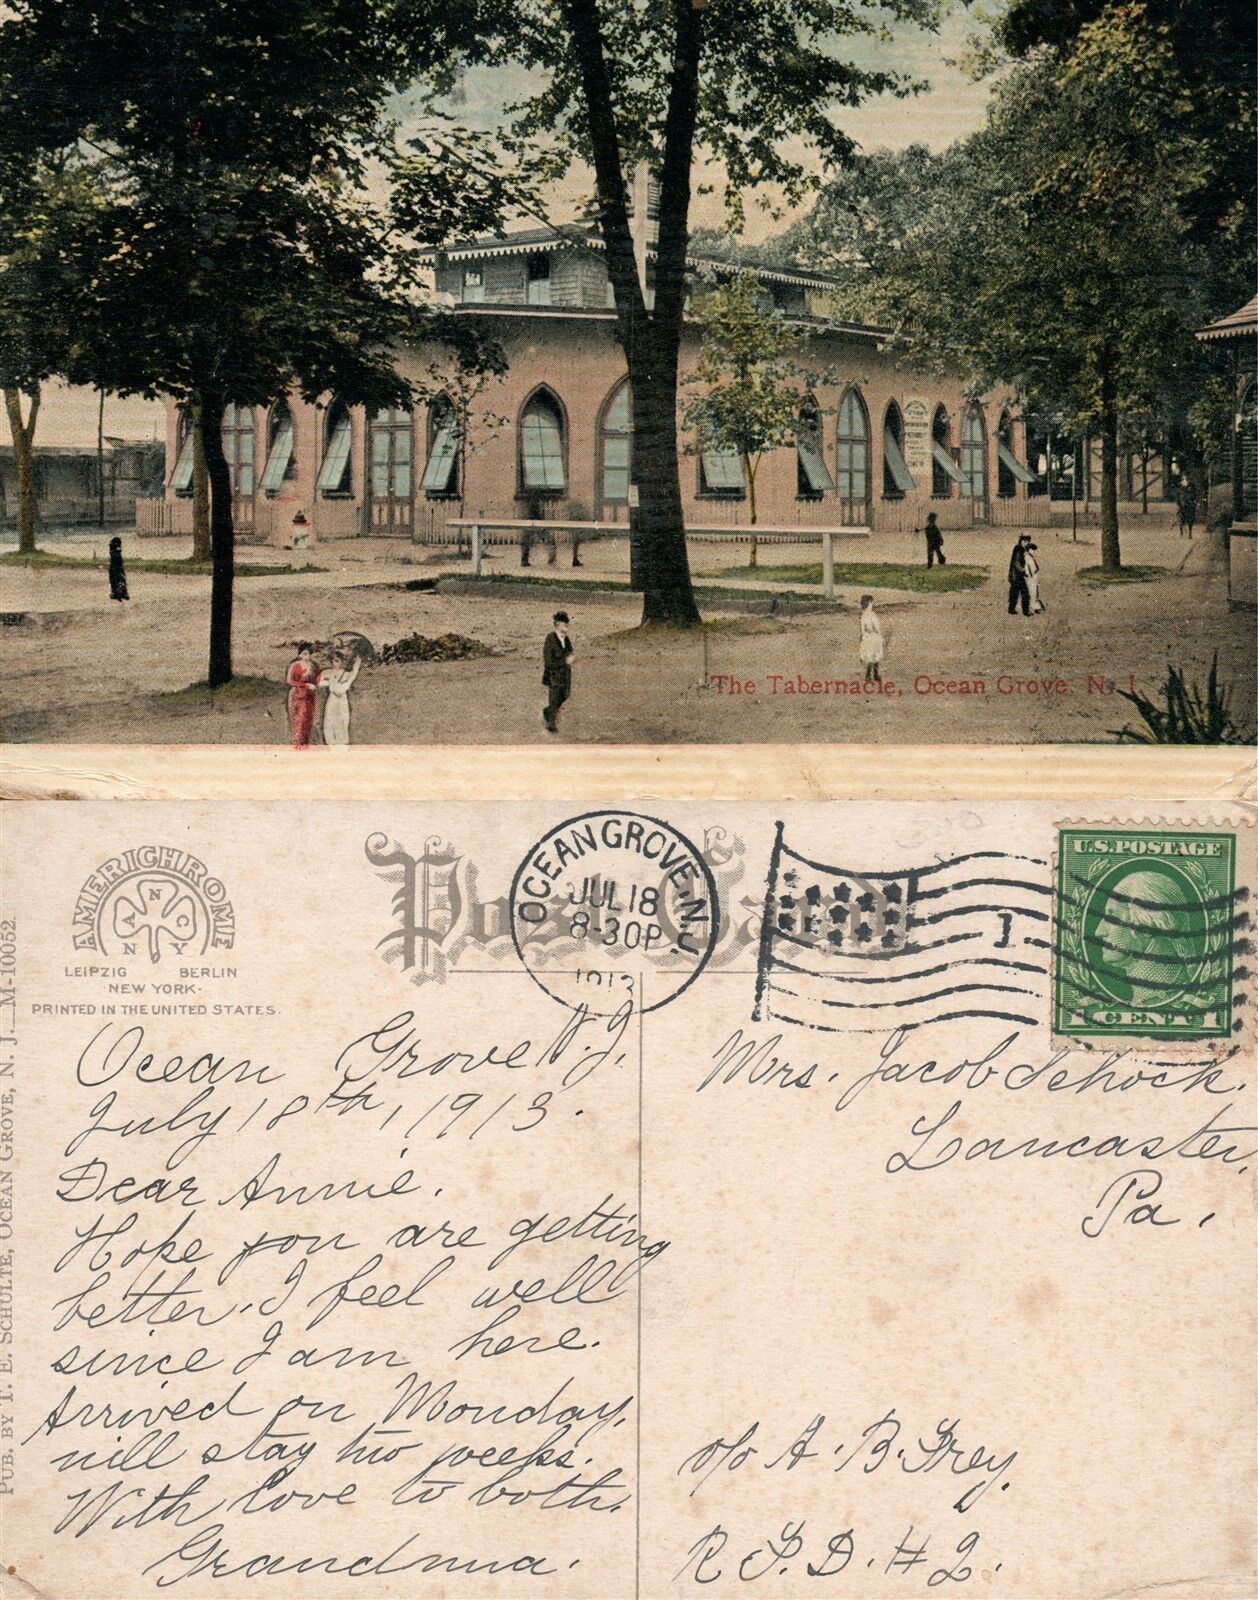 The Tabernacle, Ocean Grove, N. J.
AMERICHROME
A N C O
N Y
LEIPZIG BERLIN
NEW YORK.
PRINTED IN THE UNITED STATES.
Post Card
OCEAN GROVE, N.J.
JUL 18
8-30P
1913
1
U.S. POSTAGE
1 CENT 1
PUB. BY T. E. SCHULTE, OCEAN GROVE, N. J.—M-10052
Ocean Grove N.J.
July 18th, 1913.
Dear Annie.
Hope you are getting
better. I feel well
since I am here.
Arrived on Monday,
will stay two weeks.
With love to both.
Grandma.
Mrs. Jacob Schock.
Lancaster,
Pa.
c/o A. B. Frey.
R F. D. # 2.